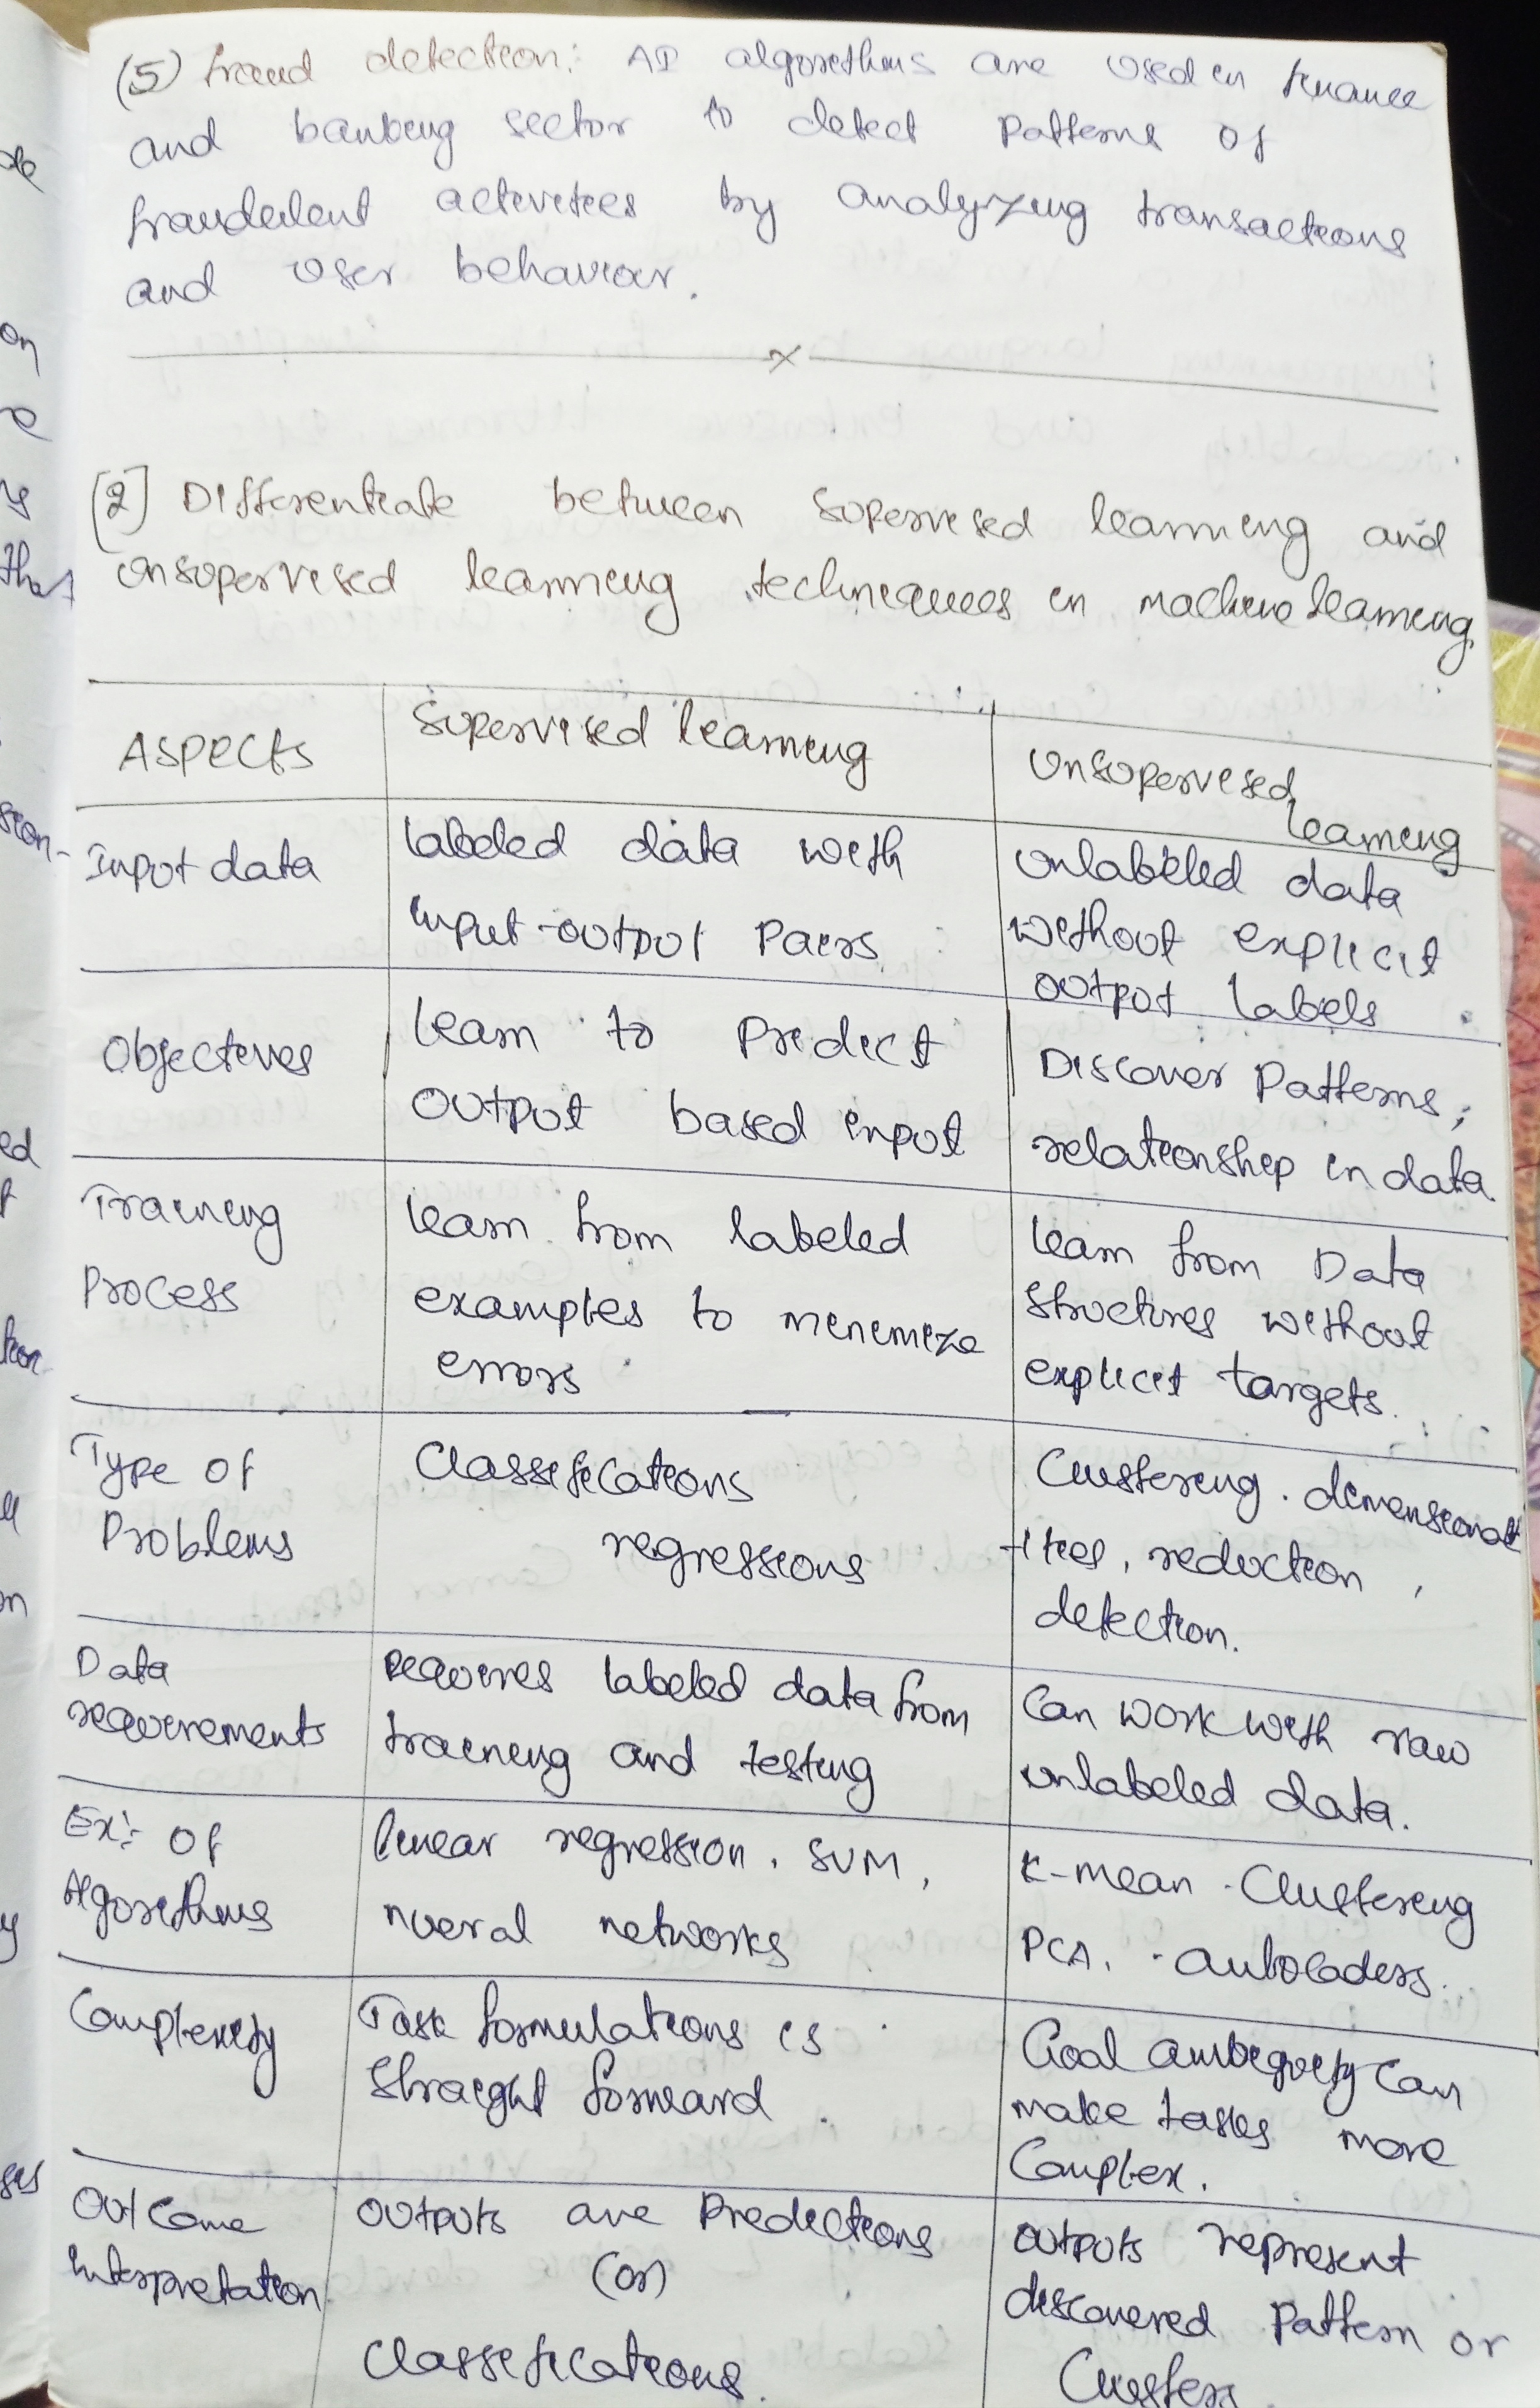 (5) Fraud detection: AI algorithms are used in finance
and banking sector to detect patterns of
fraudulent activities by analyzing transactions
and user behaviour.
x
[2] Differentiate between supervised learning and
unsupervised learning techniques in machine learning
Aspects
Supervised learning
Unsupervised
learning
Input data
labeled data with
input-output pairs.
unlabeled data
without explicit
output labels.
Objectives
learn to predict
output based input
Discover patterns,
relationship in data.
Training
Process
learn from labeled
examples to minimize
errors
learn from Data
structures without
explicit targets.
Type of
Problems
Classifications
regressions
Clustering. dimensional
-ities, reduction,
detection.
Data
requirements
Requires labeled data from
training and testing
Can work with raw
unlabeled data.
Ex: of
Algorithms
linear regression, SVM,
nueral networks
K-mean Clustering
PCA, autocaders.
Complexity
Task formulations is
straight forward.
Goal ambiguity can
make tasks more
Complex.
Outcome
Interpretation
Outputs are Predictions
(or)
Classifications.
outputs represent
discovered pattern or
Clusters